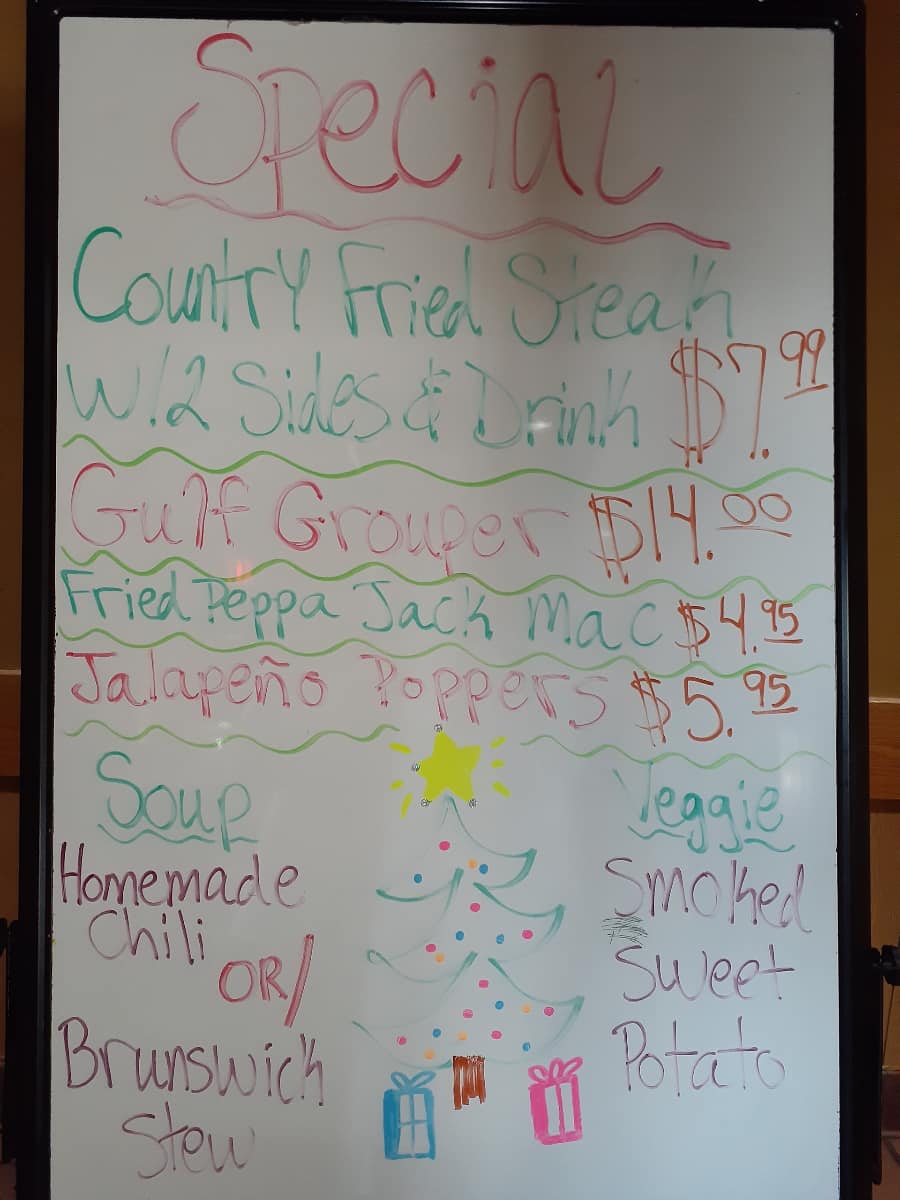 Special
Country Fried Steak
W/2 Sides & Drink $7.99
Gulf Grouper $14.00
Fried Peppa Jack Mac $4.95
Jalapeño Poppers $5.95
Soup
Homemade
Chili
OR/
Brunswick
Stew
Veggie
Smoked
Sweet
Potato